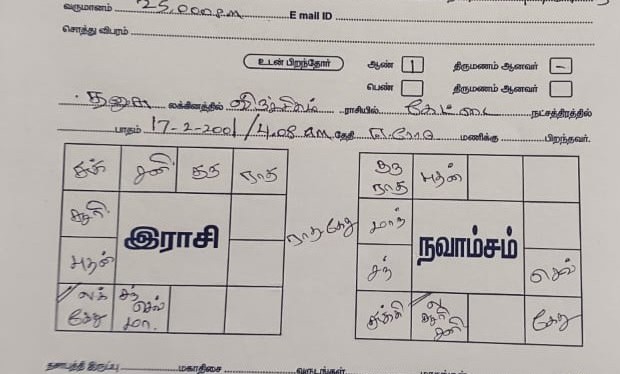 வருமானம் 25,000 P.M E mail ID
சொத்து விபரம்
உடன் பிறந்தோர் ஆண் 1 திருமணம் ஆனவர் -
பெண் திருமணம் ஆனவர்
தனுசு லக்கினத்தில் விருச்சிகம் ராசியில் கேட்டை நட்சத்திரத்தில்
பாதம் 17-2-2001 / 4.08 AM தேதி ஈரோடு மணிக்கு பிறந்தவர்.
சுக் சனி குரு ராகு
சூரி
புதன்
இராசி
லக் கேது
சந் செவ் மா.
குரு ராகு புதன்
மாந்
சந்
நவாம்சம்
செவ்
சுக்கி
ல சூரி சனி
கேது
தசாபுத்தி இருப்பு மகாதிசை வருடங்கள்